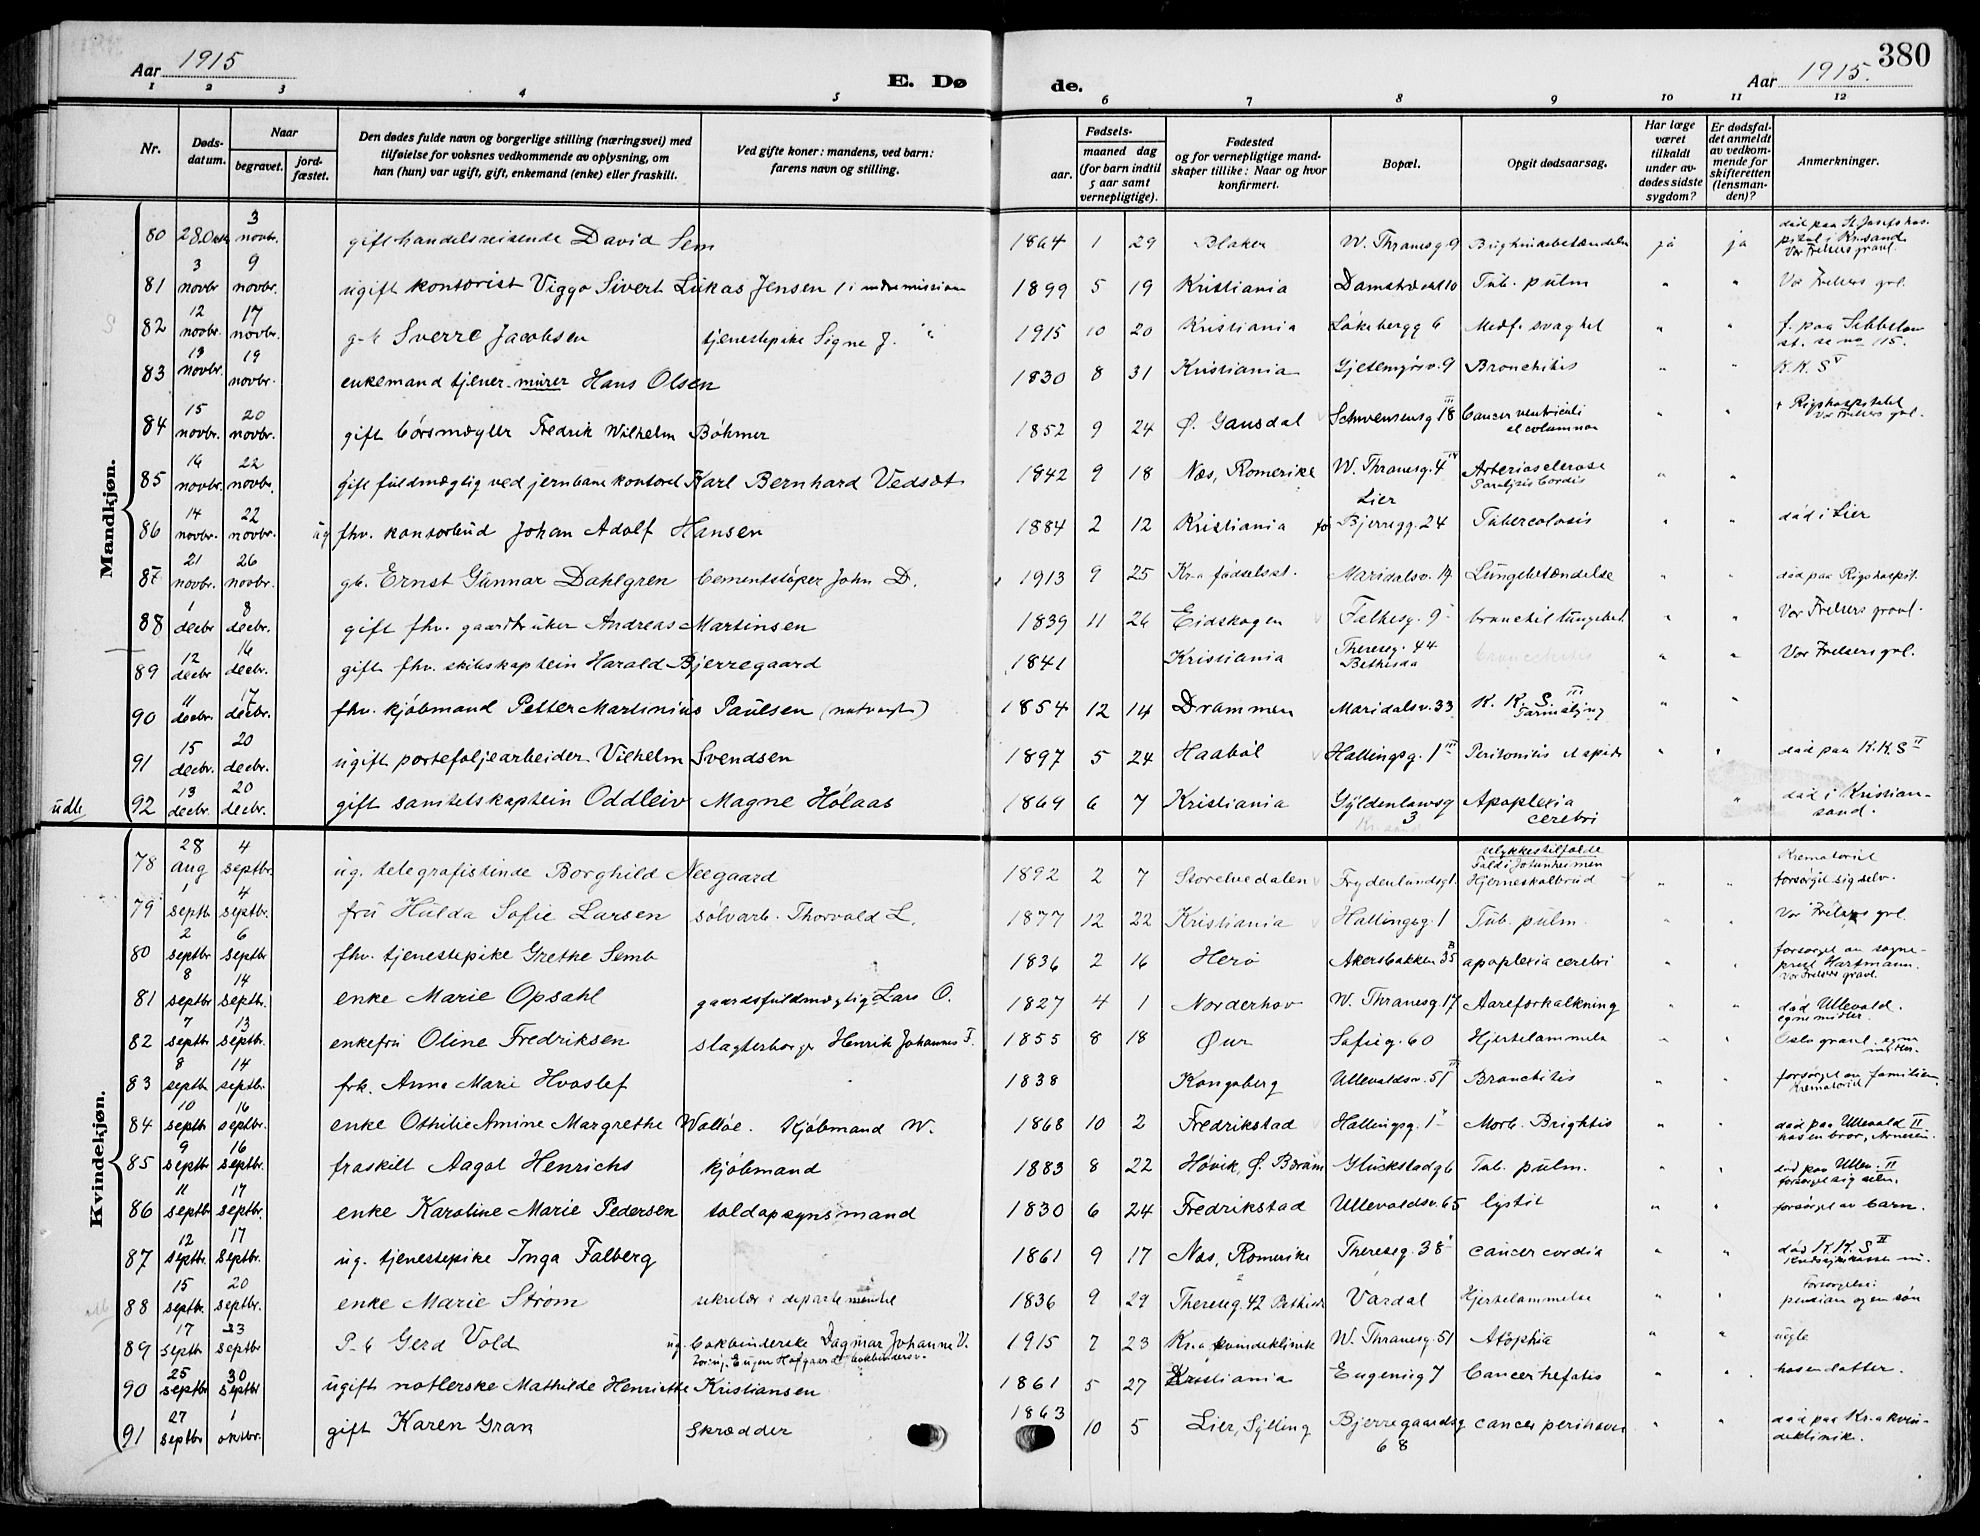 Aar 1915
E. Dø
de.
Aar 1915.
380
1 2 3 4 5 6 7 8 9 10 11 12
Nr.
Døds-
datum.
Naar
begravet.
jord-
fæstet.
Den dødes fulde navn og borgerlige stilling (næringsvei) med
tilføielse for voksnes vedkommende av oplysning, om
han (hun) var ugift, gift, enkemand (enke) eller fraskilt.
Ved gifte koner: mandens, ved barn:
farens navn og stilling.
Fødsels-
aar.
maaned dag
(for barn indtil
5 aar samt
vernepligtige).
Fødested
og for vernepligtige mand-
skaper tillike: Naar og hvor
konfirmert.
Bopæl.
Opgit dødsaarsag.
Har læge
været
tilkaldt
under av-
dødes sidste
sygdom?
Er dødsfal-
det anmeldt
av vedkom-
mende for
skifteretten
(lensman-
den)?
Anmerkninger.
Mandkjøn.
80 28 Oktr 3 novbr. gift handelsreisende David Sem 1864 1 29 Blaker W. Thranesg 9 ja ja død paa St Josefs hos-
pital i Kr.sand
Vor Frelsers gravl.
81 3 novbr 9 novbr. ugift kontorist Viggo Sivert Lukas Jensen 1899 5 19 Kristiania Tub. pulm " " Vor Frelsers gvl.
82 12 novbr. 17 novbr. g-b Sverre Jacobsen tjenestepike Signe J. " 1915 10 20 Kristiania Løkebergg 6 Medf. svaghet " " f. paa
st. se no 115.
83 13 novbr. 19 novbr. enkemand tjener - murer Hans Olsen 1830 8 31 Kristiania Gjetemyrsv. 9 Bronchitis " " K.K.S V
84 15 novbr. 20 novbr. gift børsmægler Fredrik Wilhelm Bøhmer 1852 9 24 Ø. Gausdal Schwensensg 18 III Cancer ventriculi
" " + Rigshospitalet
Vor Frelsers gvl.
85 16 novbr. 22 novbr. gift fuldmægtig ved jernbanekontoret Karl Bernhard Vedsæt 1842 9 18 Næs, Romerike W. Thranesg. 4 Arteriosclerose
Paralysis Cordis " "
86 14 novbr. 22 novbr. ug fhv. kontorbud Johan Adolf Hansen 1884 2 12 Kristiania Lier
Bjerregg. 24 Tuberculosis " " død i Lier
87 21 novbr. 26 novbr. gb. Ernst Gunnar Dahlgren Cementstøper John D. 1913 9 25 Kr.a fødselsst. Maridalsv. 19 Lungebetændelse " " død paa Rigshospit.
88 1 decbr 8 decbr. gift fhv. gaardbruker Andreas Martinsen 1839 11 26 Eidskogen Falkesg. 9 " " Vor Frelsers gravl.
89 12 decbr 16 decbr. gift fhv. skibskaptein Harald Bjerregaard 1841 Kristiania Thereseg. 44
Bethesda " " Vor Frelsers gvl.
90 11 decbr. 17 decbr. fhv. kjøbmand Petter Martinius Paulsen 1854 12 14 Drammen Maridalsv. 33 K. K. S. III " "
91 15 decbr. 20 decbr. ugift portefoljearbeider Vilhelm Svendsen 1897 5 24 Haabøl Hallingsg. 1 III Peritonitis " død paa K.K.S II
udle 92 13 decbr. 20 decbr. gift sanitetskaptein Oddleiv Magne Hølaas 1869 6 7 Kristiania Gyldenløwsg
3 Apoplexia
cerebri " død i Kristian-
sand.
Kvindekjøn.
78 28 aug 4 septbr. ug. telegrafistinde Borghild Neegaard 1892 2 7 Storelvedalen Frydenlundsgt. ulykkestilfælde
Fald i Jotunheimen
Hjerneskalbrud " " Krematoriet
forsørget sig selv.
79 1 septb 4 septbr. fru Hulda Sofie Larsen sølvarb. Thorvald L. 1877 12 22 Kristiania Hallingsg. 1 Tub. pulm. " " Vor Frelsers gvl.
80 2 septbr 6 septbr fhv. tjenestepike Grethe Semb 1836 2 16 Herø Akersbakken 35 B apoplexia cerebri " " forsørget av sogne-
prest Hartmann.
Vor Frelsers gravl.
81 8 septbr 14 septbr. enke Marie Opsahl gaardsfuldmægtig Lars O. 1827 4 1 Norderhov W. Thranesg. 17 Aareforkalkning " " død Ullevald.
egne midler.
82 7 septbr 13 septbr. enkefru Oline Fredriksen slagterborger Henrik Johannes F. 1855 8 18 Øur Sofieg. 60 Hjertelammelse " " Oslo gravl. egne
midler.
83 8 septb 14 septbr. frk. Anna Marie Hvoslef 1838 Kongsberg Ullevaldsv. 51 II Bronchitis " " forsørget av familien.
Krematoriet
84 10 septbr 16 septbr. enke Othilie Amine Margrethe Walløe. Kjøbmand W. 1868 10 2 Fredrikstad Hallingsg. 1 Morb. Brightis " " død paa Ullevald II
hos en bror, Arnesen.
85 9 septbr 16 septbr. fraskilt Aagot Henrichs kjøbmand 1883 8 22 Høvik, Ø. Bærum Glückstadg 6 Tub. pulm. " " død paa Ullev. II
forsørget sig selv.
86 11 septb 17 septbr. enke Karoline Marie Pedersen toldopsynsmand 1830 6 24 Fredrikstad Ullevaldsv. 65 " " forsørget av barn.
87 12 septbr. 17 septbr. ug. tjenestepike Inga Falberg 1861 9 17 Næs, Romerike Thereseg. 38 cancer cordia " " død K.K.S II
88 15 septbr. 20 septbr. enke Marie Strøm sekretær i departementet 1836 9 29 Thereseg. 42 Bethesda Vardal Hjertelammelse " " Forsørgelse:
pension og en søn
89 17 septb 23 septbr P-b Gerd Vold ug. bokbinderske Dagmar Johanne V.
1915 7 23 Kr.a kvindeklinik W. Thranesg. 51 Atrophia " " uegte
90 25 septbr 30 septbr ugift Mathilde Henriette Kristiansen 1861 5 27 Kristiania Eugenieg 7 Cancer hepatis " " hos en datter.
91 27 septbr 1 oktbr. gift Karen Gran skrædder 1863 10 5 Lier, Sylling Bjerregaardsg
68 " " død paa Kr.a kvin-
deklinik.